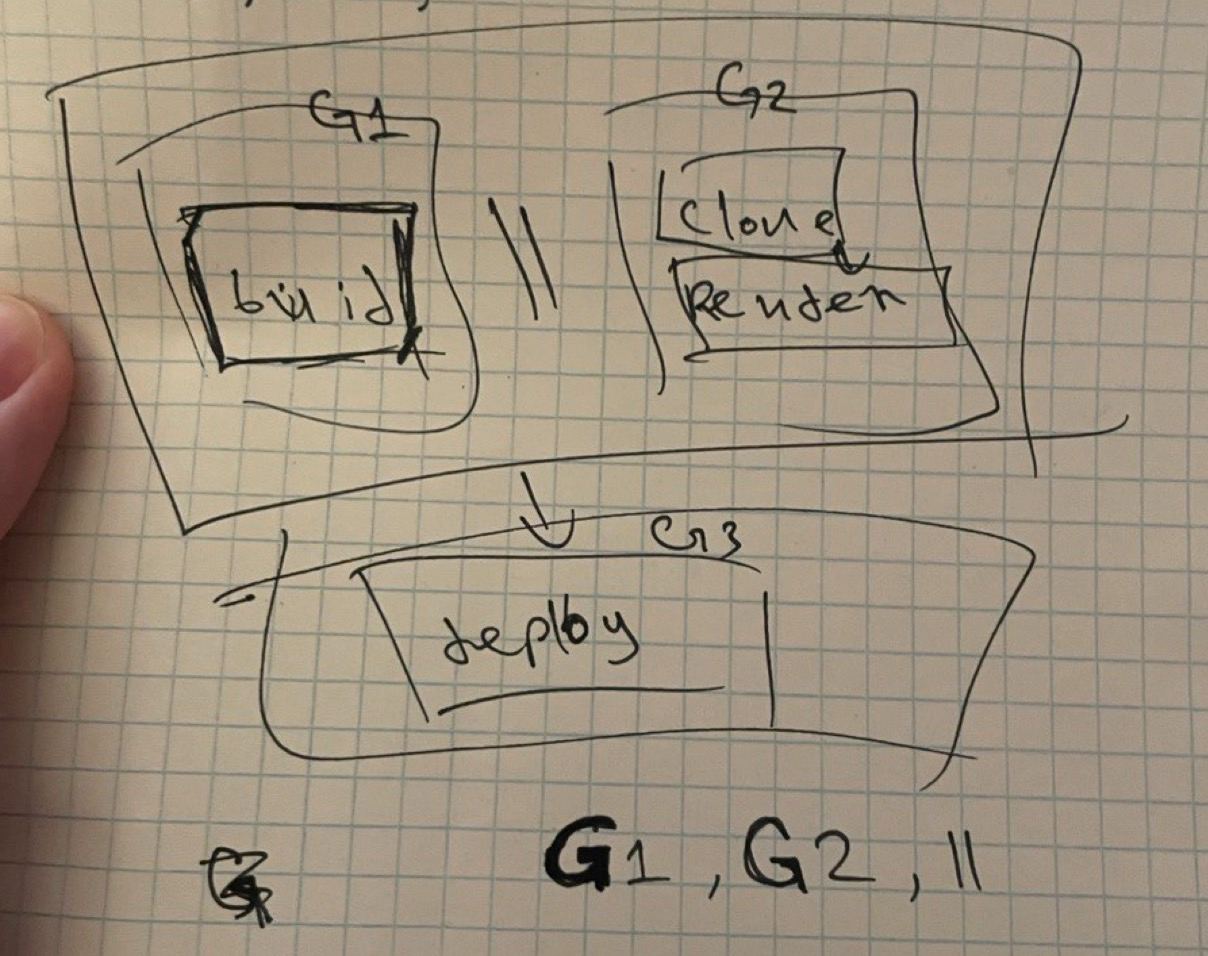 G1
G2
build
||
Clone
Render
G3
deploy
G1, G2, ||